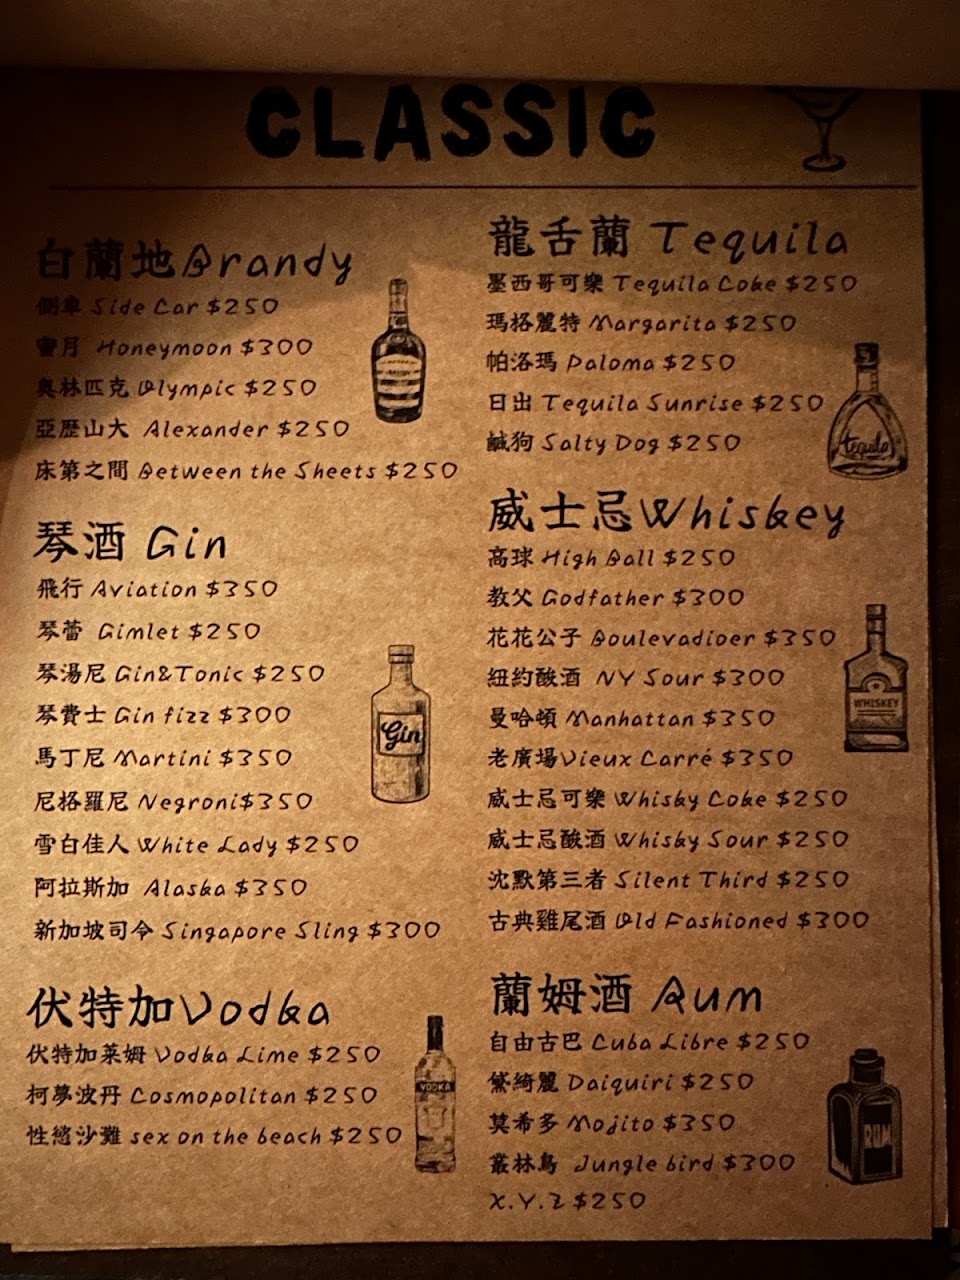 CLASSIC
白蘭地Brandy
側車 Side Car $250
蜜月 Honeymoon $300
奧林匹克 Olympic $250
亞歷山大 Alexander $250
床第之間 Between the Sheets $250
琴酒 Gin
飛行 Aviation $350
琴蕾 Gimlet $250
琴湯尼 Gin&Tonic $250
琴費士 Gin fizz $300
馬丁尼 Martini $350
尼格羅尼 Negroni$350
雪白佳人 White Lady $250
阿拉斯加 Alaska $350
新加坡司令 Singapore Sling $300
伏特加Vodka
伏特加萊姆 Vodka Lime $250
柯夢波丹 Cosmopolitan $250
性慾沙灘 sex on the beach $250
龍舌蘭 Tequila
墨西哥可樂 Tequila Coke $250
瑪格麗特 Margarita $250
帕洛瑪 Paloma $250
日出 Tequila Sunrise $250
鹹狗 Salty Dog $250
威士忌Whiskey
高球 High Ball $250
教父 Godfather $300
花花公子 Boulevadioer $350
紐約酸酒 NY Sour $300
曼哈頓 Manhattan $350
老廣場Vieux Carré $350
威士忌可樂 Whisky Coke $250
威士忌酸酒 Whisky Sour $250
沈默第三者 Silent Third $250
古典雞尾酒 Old Fashioned $300
蘭姆酒 Rum
自由古巴 Cuba Libre $250
黛綺麗 Daiquiri $250
莫希多 Mojito $350
叢林鳥 Jungle bird $300
X.Y.Z $250
Gin
VODKA
tequila
WHISKEY
RUM